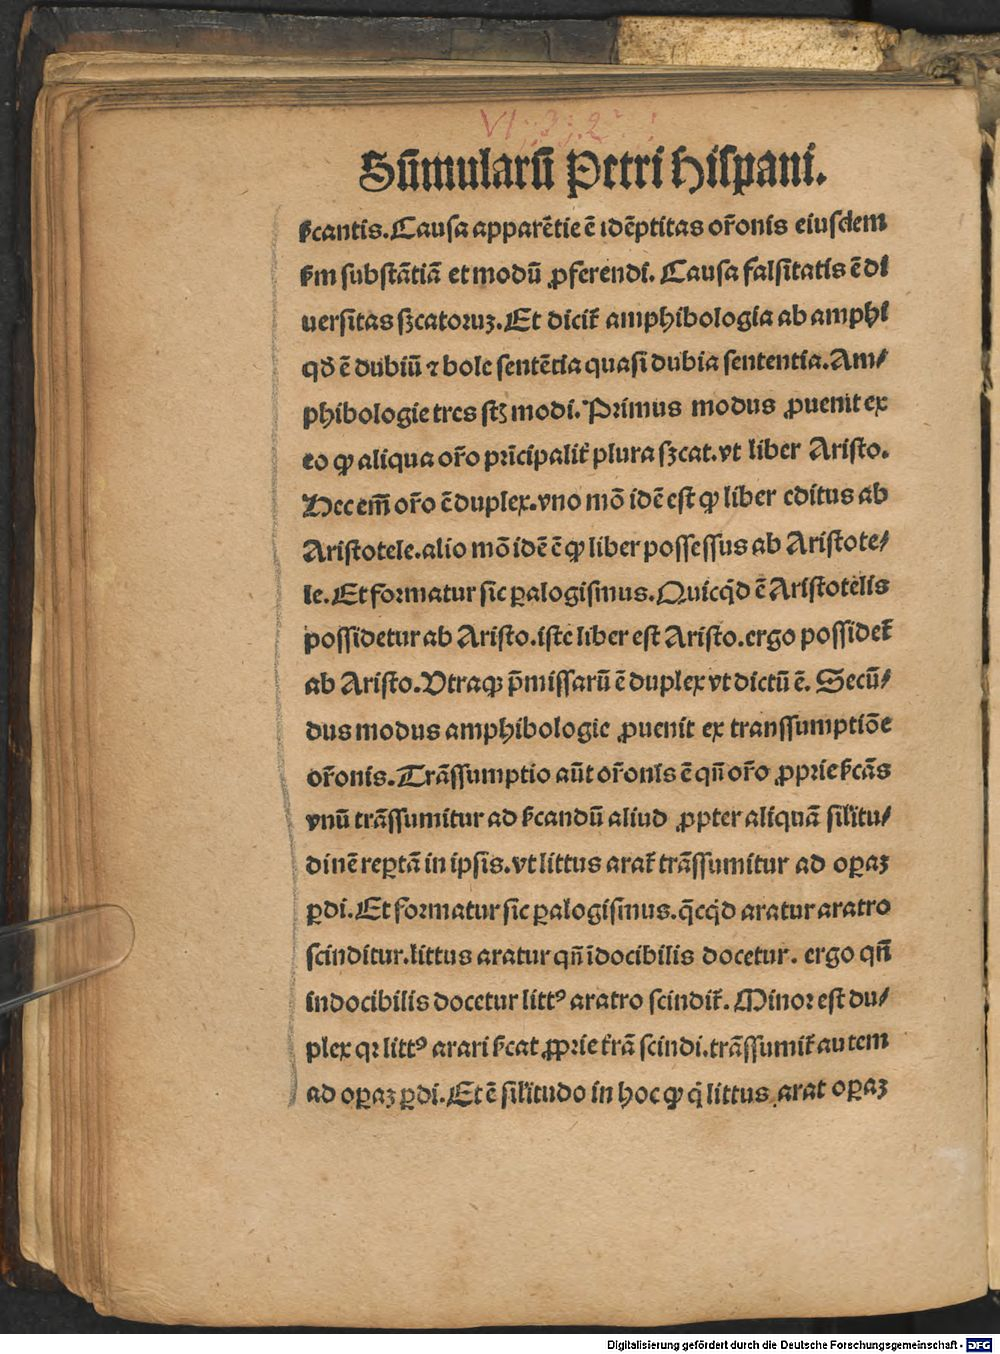 VI. 3. 2
Sūmularū Petri Hispani.
ẜcantis. Causa apparētie ē idēptitas or̄onis eiusdem
ẜm substātiā et modū ꝓferendi. Causa falsitatis ē di
uersitas sꝫcatoruꝫ. Et dicit̄ amphibologia ab amphi
qd̄ ē dubiū ⁊ bole sentētia quasi dubia sententia. Am⸗
phibologie tres stꝫ modi. Primus modus ꝓuenit ex
eo ꝙ aliqua or̄o prīcipalit̄ plura sꝫcat. vt liber Aristo.
Hec em̄ or̄o ē duplex. vno mō idē est ꝙ liber editus ab
Aristotele. alio mō idē ē ꝙ liber possessus ab Aristote⸗
le. Et formatur sic ꝑalogismus. Quicq̇d ē Aristotelis
possidetur ab Aristo. iste liber est Aristo. ergo possidet̄
ab Aristo. Vtraqꝫ p̄missarū ē duplex vt dictū ē. Secū⸗
dus modus amphibologie ꝓuenit ex transsumptiōe
or̄onis. Trāssumptio aūt or̄onis ē qn̄ or̄o ꝓprie ẜcās
vnū trāssumitur ad ẜcandū aliud ꝓpter aliquā sil̄itu⸗
dinē reꝑtā in ipsis. vt littus arat̄ trāssumitur ad oꝑaꝫ
ꝑdi. Et formatur sic ꝑalogismus. q̄cq̇d aratur aratro
scinditur. littus aratur qn̄ īdocibilis docetur. ergo qn̄
indocibilis docetur littꝰ aratro scindit̄. Minor est du⸗
plex qꝛ littꝰ arari ẜcat ꝓprie t̄rā scindi. trāssumit̄ autem
ad oꝑaꝫ ꝑdi. Et ē sil̄itudo in hoc ꝙ q̇ littus arat oꝑaꝫ
Digitalisierung gefördert durch die Deutsche Forschungsgemeinschaft - DFG